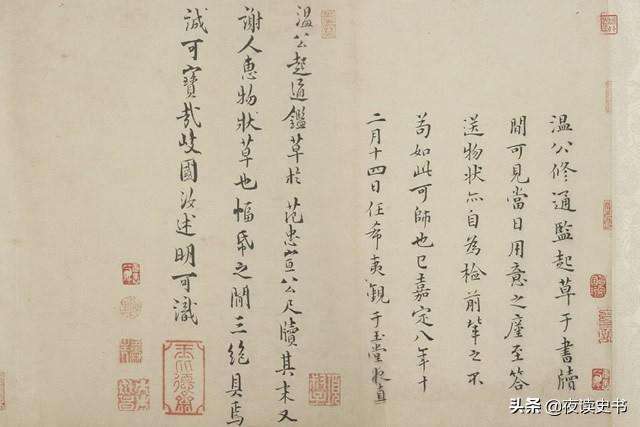 温公修通監起草于書牘
間可見當日用意之廑至答
送物狀亦自為檢前輩之不
苟如此可師也已嘉定八年十
二月十四日任希夷觀于玉堂夜直
温公起通鑑草於范忠宣公尺牘其末又
謝人惠物狀草也幅帋之間三絶具焉
誠可寶哉歧國汝述明可識
头条 @夜读史书